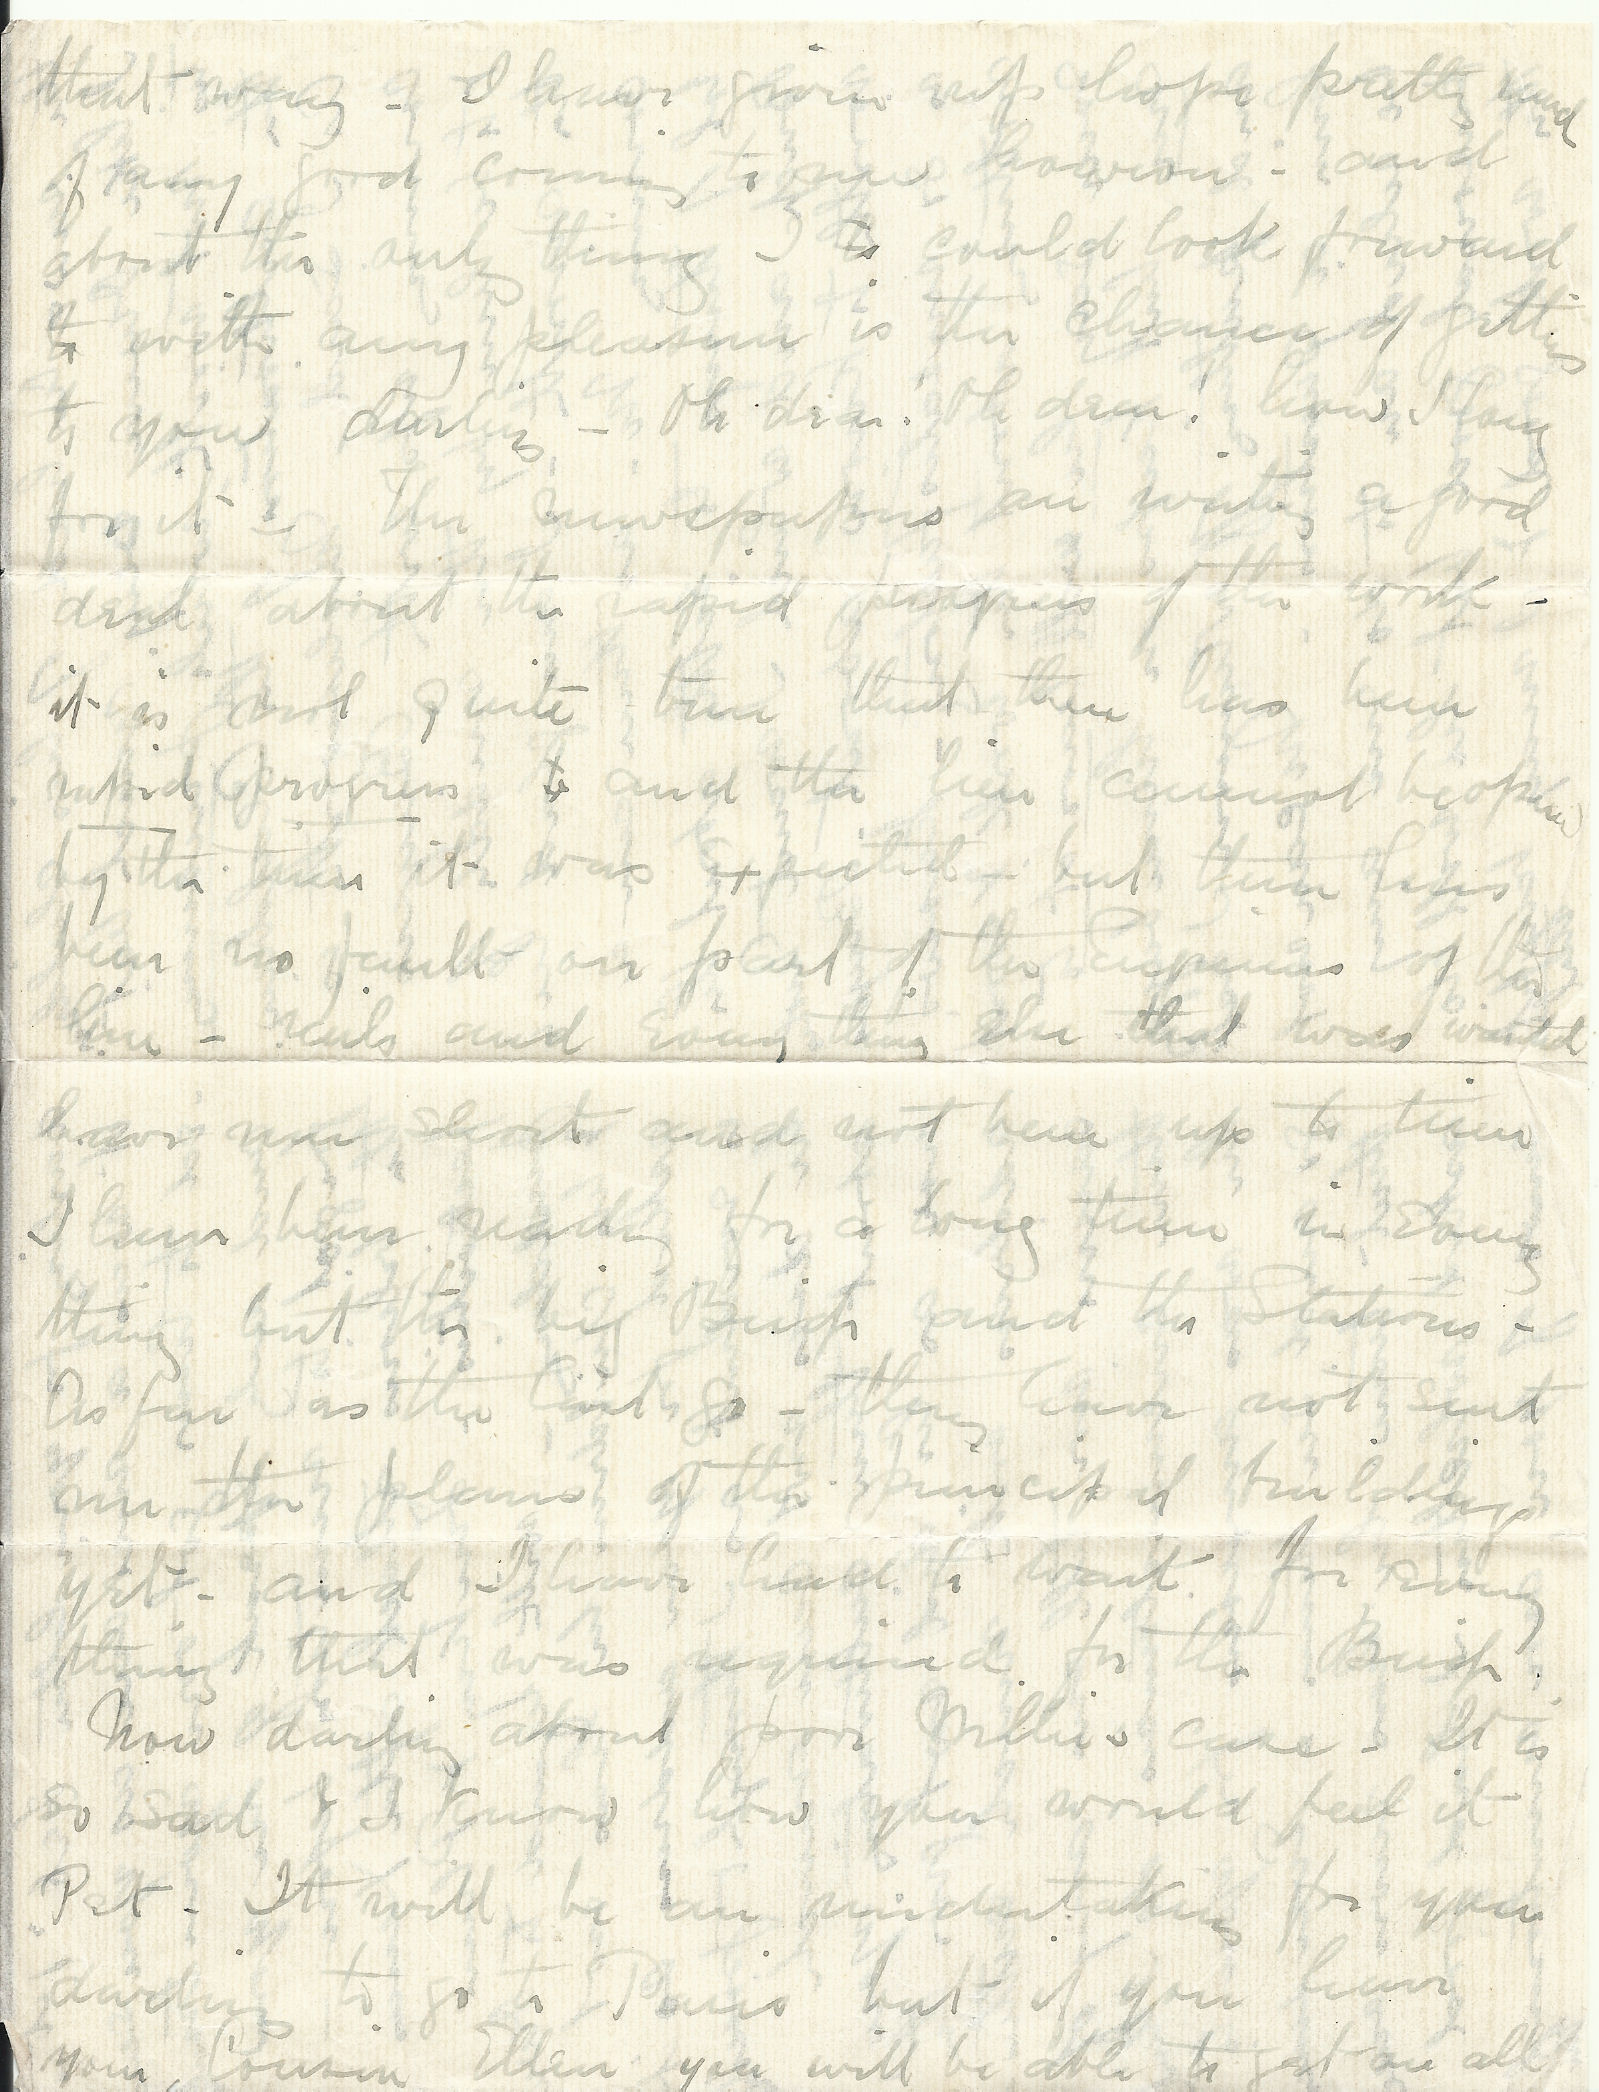 that way - I have given up hope pretty much
of any good coming to me however - and
about the only thing I to could look forward
to with any pleasure is the chance of getting
to you darling - Oh dear! Oh dear! how I long
for it - The newspapers are writing a good
deal about the rapid progress of the work -
it is not quite true that there has been
rapid progress & and the line cannot be opened
by the time it was expected - but there has
been no fault on part of the Engineers of the
line - rails and every thing else that was wanted
have run short and not been up to time
I have been ready for a long time in every
thing but the big Bridge and the Stations -
As far as the last go - they have not sent
me the plans of the principal buildings
yet - and I have had to wait for every
thing that was required for the Bridge.
Now darling about poor Millie's case - It is
so sad & I know how you would feel it
Pet - It will be an undertaking for you
darling to go to Paris but if you have
your Cousin Ellen you will be able to get on all